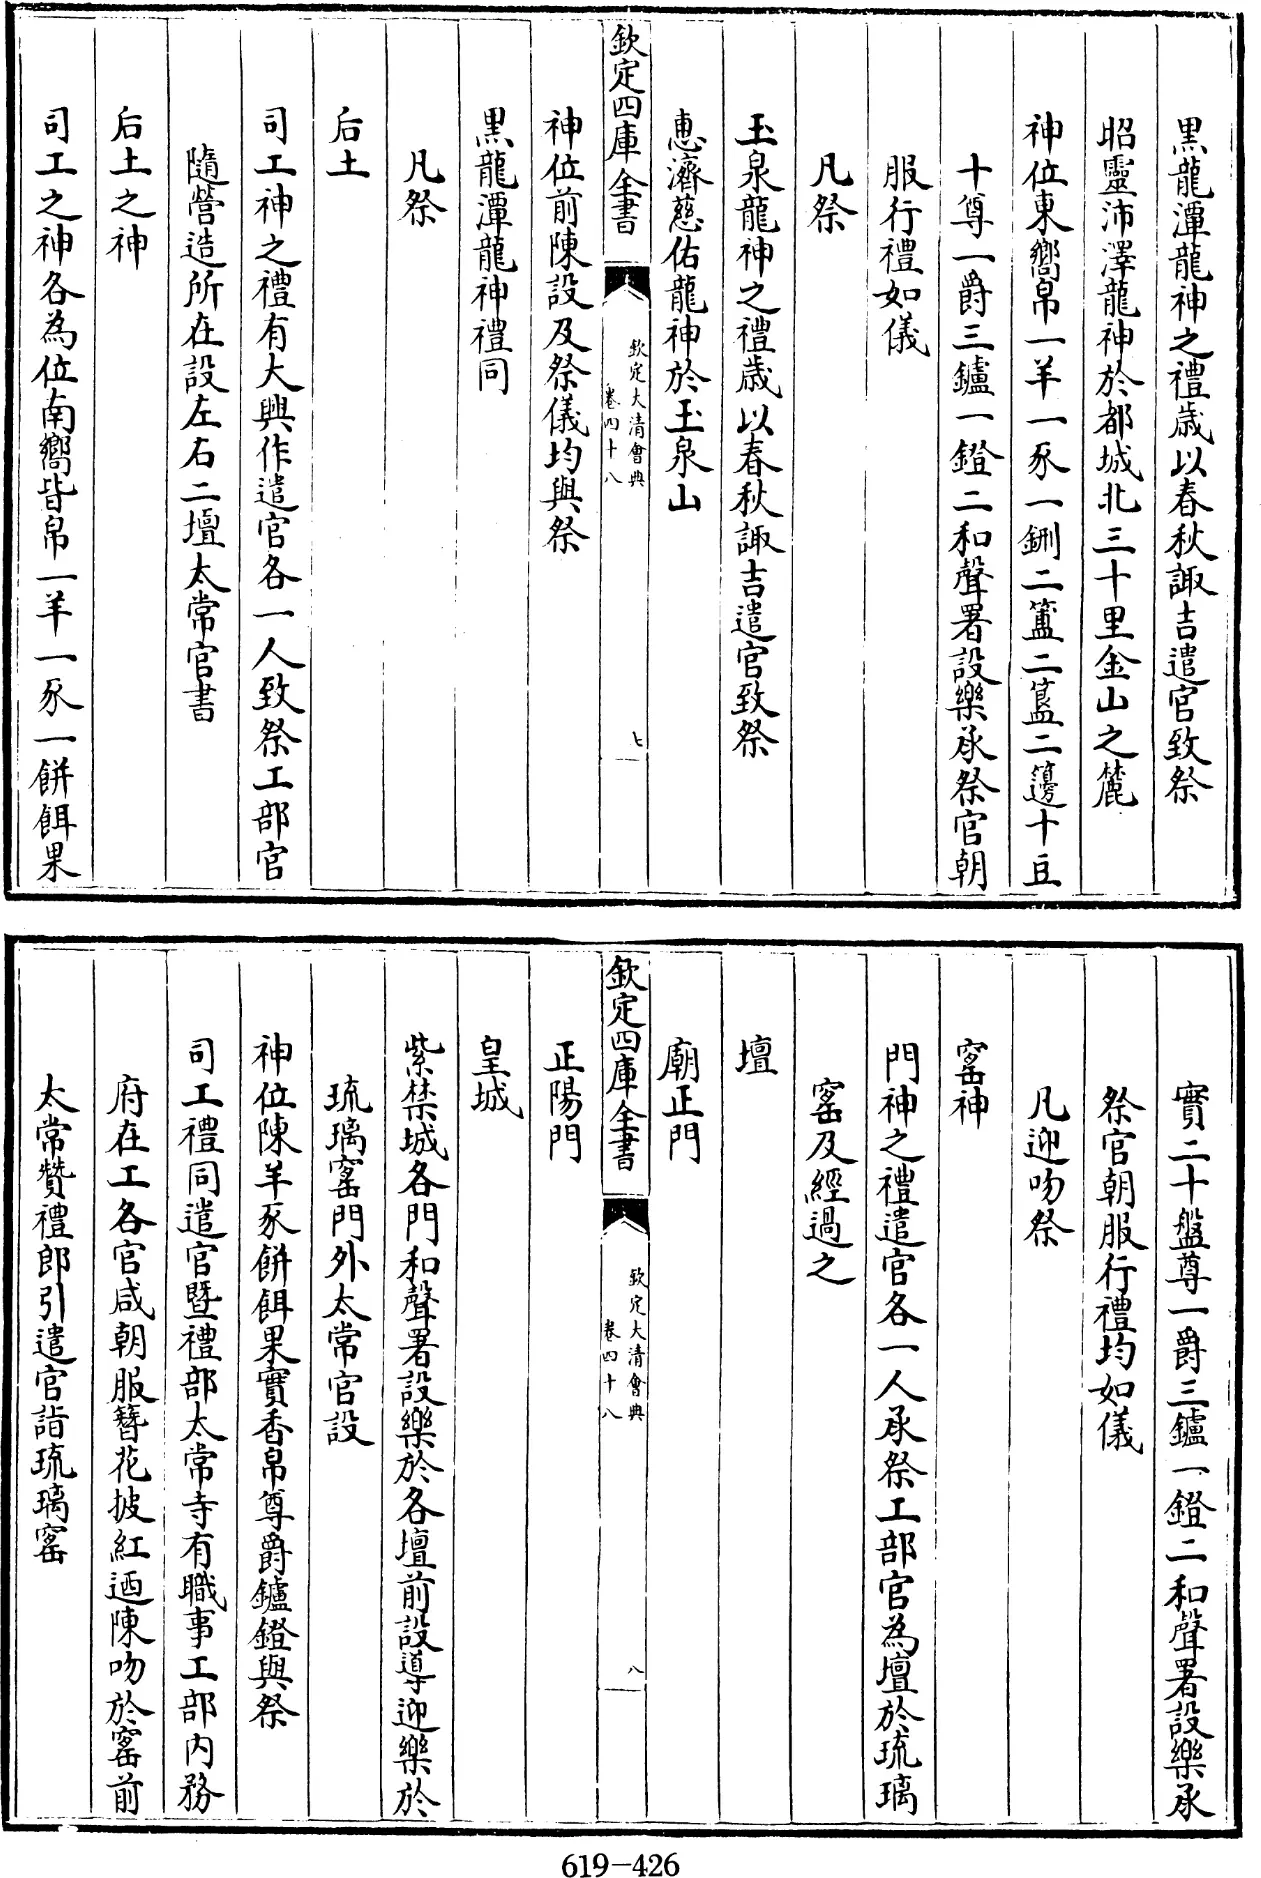 黒龍潭龍神之禮歳以春秋諏吉遣官致祭
昭靈沛澤龍神於都城北三十里金山之麓
神位東嚮帛一羊一豕一鉶二簠二簋二籩十豆
十尊一爵三鑪一鐙二和聲署設樂承祭官朝
服行禮如儀
凡祭
玉泉龍神之禮歳以春秋諏吉遣官致祭
惠濟慈佑龍神於玉泉山
欽定四庫全書
欽定大清會典
卷四十八
七
神位前陳設及祭儀均與祭
黒龍潭龍神禮同
凡祭
后土
司工神之禮有大興作遣官各一人致祭工部官
隨營造所在設左右二壇太常官書
后土之神
司工之神各為位南嚮皆帛一羊一豕一餅餌果
實二十盤尊一爵三鑪一鐙二和聲署設樂承
祭官朝服行禮均如儀
凡迎吻祭
窰神
門神之禮遣官各一人承祭工部官為壇於琉璃
窰及經過之
壇
廟正門
欽定四庫全書
欽定大清會典
卷四十八
八
正陽門
皇城
紫禁城各門和聲署設樂於各壇前設導迎樂於
琉璃窰門外太常官設
神位陳羊豕餅餌果實香帛尊爵鑪鐙與祭
司工禮同遣官暨禮部太常寺有職事工部内務
府在工各官咸朝服簪花披紅迺陳吻於窰前
太常贊禮郎引遣官詣琉璃窰
619-426